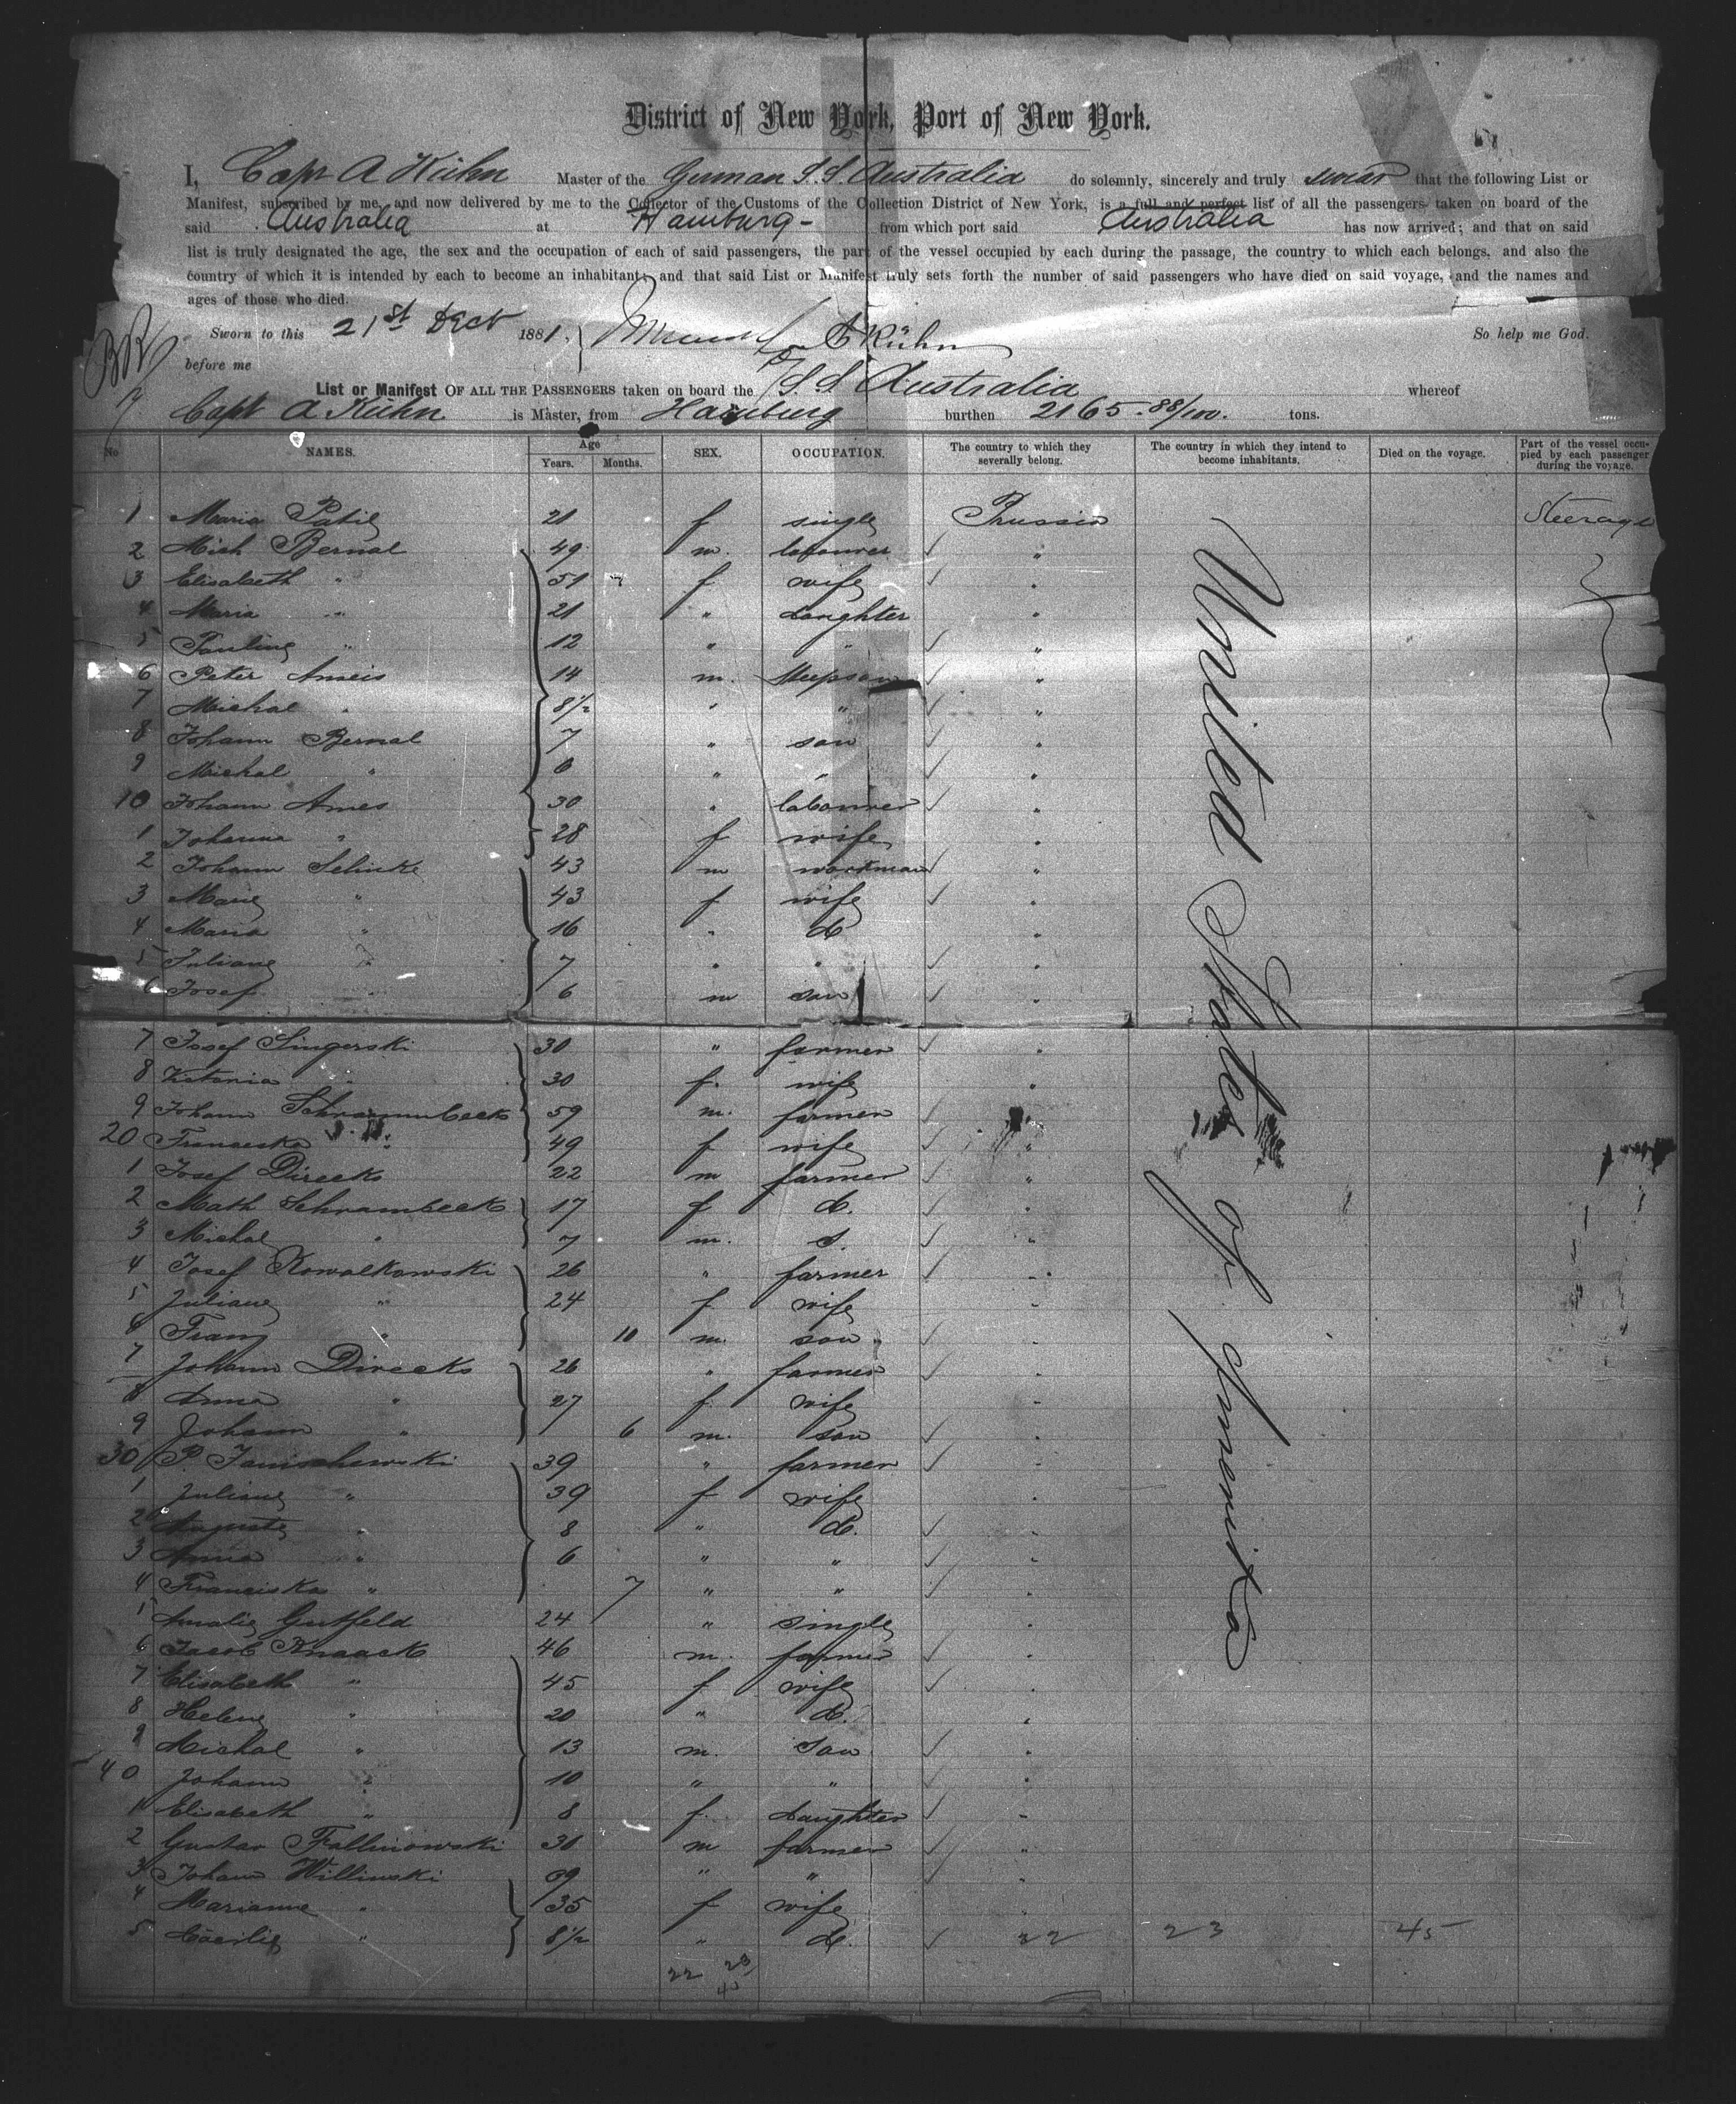 District of New York, Port of New York.
I, Capt A Kühn Master of the German S.S. Australia do solemnly, sincerely and truly swear that the following List or
Manifest, subscribed by me, and now delivered by me to the Collector of the Customs of the Collection District of New York, is a full and perfect list of all the passengers taken on board of the
said Australia at Hamburg - from which port said Australia has now arrived; and that on said
list is truly designated the age, the sex and the occupation of each of said passengers, the part of the vessel occupied by each during the passage, the country to which each belongs, and also the
country of which it is intended by each to become an inhabitant; and that said List or Manifest truly sets forth the number of said passengers who have died on said voyage, and the names and
ages of those who died.
Sworn to this 21st Dect 1881. A Kühn So help me God.
before me
List or Manifest OF ALL THE PASSENGERS taken on board the S S Australia whereof
Capt A Kühn is Master, from Hamburg burthen 2165-88/100. tons.
No NAMES. Age Years. Months. SEX. OCCUPATION. The country to which they severally belong. The country in which they intend to become inhabitants. Died on the voyage. Part of the vessel occupied by each passenger during the voyage.
1 Maria 21 f single Prussia Steerage
2 Mich Bernal 49 m. labourer "
3 Elisabeth " 51 f wife "
4 Maria " 21 " daughter "
5 Pauline " 12 " " "
6 Peter Ameis 14 m. Steepson "
7 Michal " 8 1/2 " " "
8 Johann Bernal 7 " son "
9 Michal " 6 " " "
10 Johann Ames 30 " labourer "
1 Johanna " 28 f wife "
2 Johann Schuke 43 m workman "
3 Marie " 43 f wife "
4 Maria " 16 " d "
5 Juliane " 7 " " "
6 Josef " 6 m son "
7 Josef Singerski 30 " farmer "
8 " 30 f. wife "
9 Johann Schrammbeck 59 m. farmer "
20 Franciska " 49 f wife "
1 Josef Direcks 22 m farmer "
2 Math Schrambeck 17 f d. "
3 Michal " 7 m. s. "
4 Josef Kowalkowski 26 " farmer "
5 Juliane " 24 f wife "
6 Franz " 10 m. son "
7 Johann Direcks 26 " farmer "
8 Anna " 27 f. wife "
9 Johann " 6 m. son "
30 P Janischewski 39 " farmer "
1 Juliane " 39 f wife "
2 Auguste " 8 " d. "
3 Anna " 6 " " "
4 Franciska " 7 " " "
5 Amalie Gutfeld 24 " single "
6 Jacob Knaack 46 m. farmer "
7 Elisabeth " 45 f wife "
8 Helene " 20 " d. "
9 Michal " 13 m. son "
40 Johann " 10 " " "
1 Elisabeth " 8 f. daughter "
2 Gustav Fallinowski 30 m farmer "
3 Johann Willinski 39 " " "
4 Marianne " 35 f wife "
5 Cäcilie " 8 1/2 " d. 22 23 45
22 23
45
United States of America